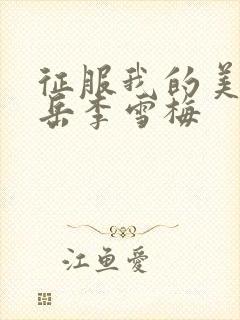 征服我的美
岳李雪梅
江鱼愛